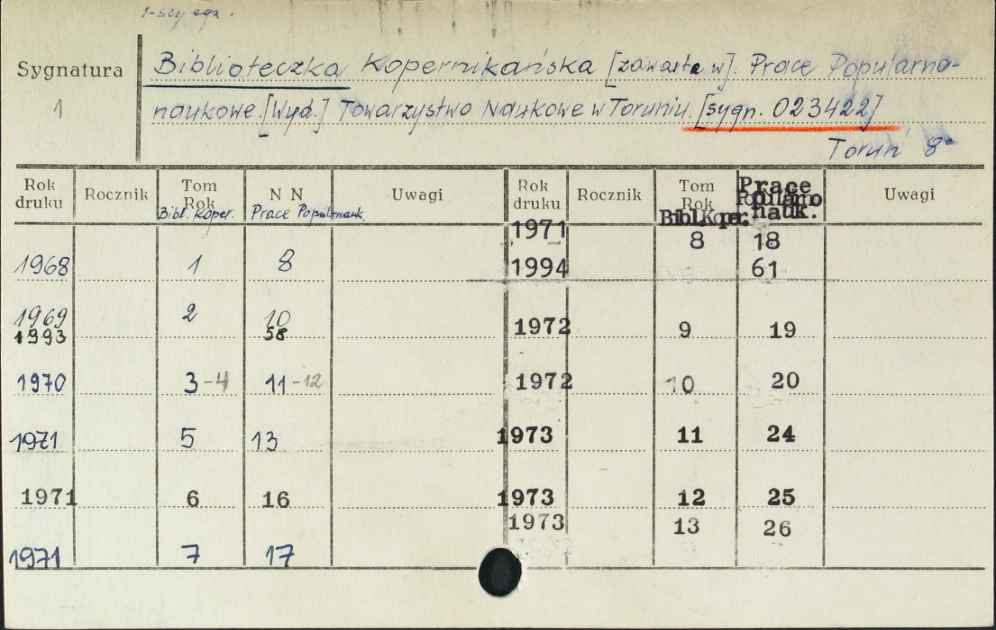 1-szy egz.
Sygnatura
1
Biblioteczka Kopernikańska [zawarta w]. Prace Popularno-
naukowe. [Wyd.] Towarzystwo Naukowe w Toruniu. [sygn. 023422]
Toruń 8°
Rok druku Rocznik Tom Rok Bibl. Koper. N N Prace Popularnonauk Uwagi Rok druku Rocznik Tom Rok Bibl.Koper. Prace Popularno nauk. Uwagi
1971 8 18
1968 1 8 1994 61
1969 2 10
1993 58 1972 9 19
1970 3-4 11-12 1972 10 20
1971 5 13 1973 11 24
1971 6 16 1973 12 25
1973 13 26
1971 7 17